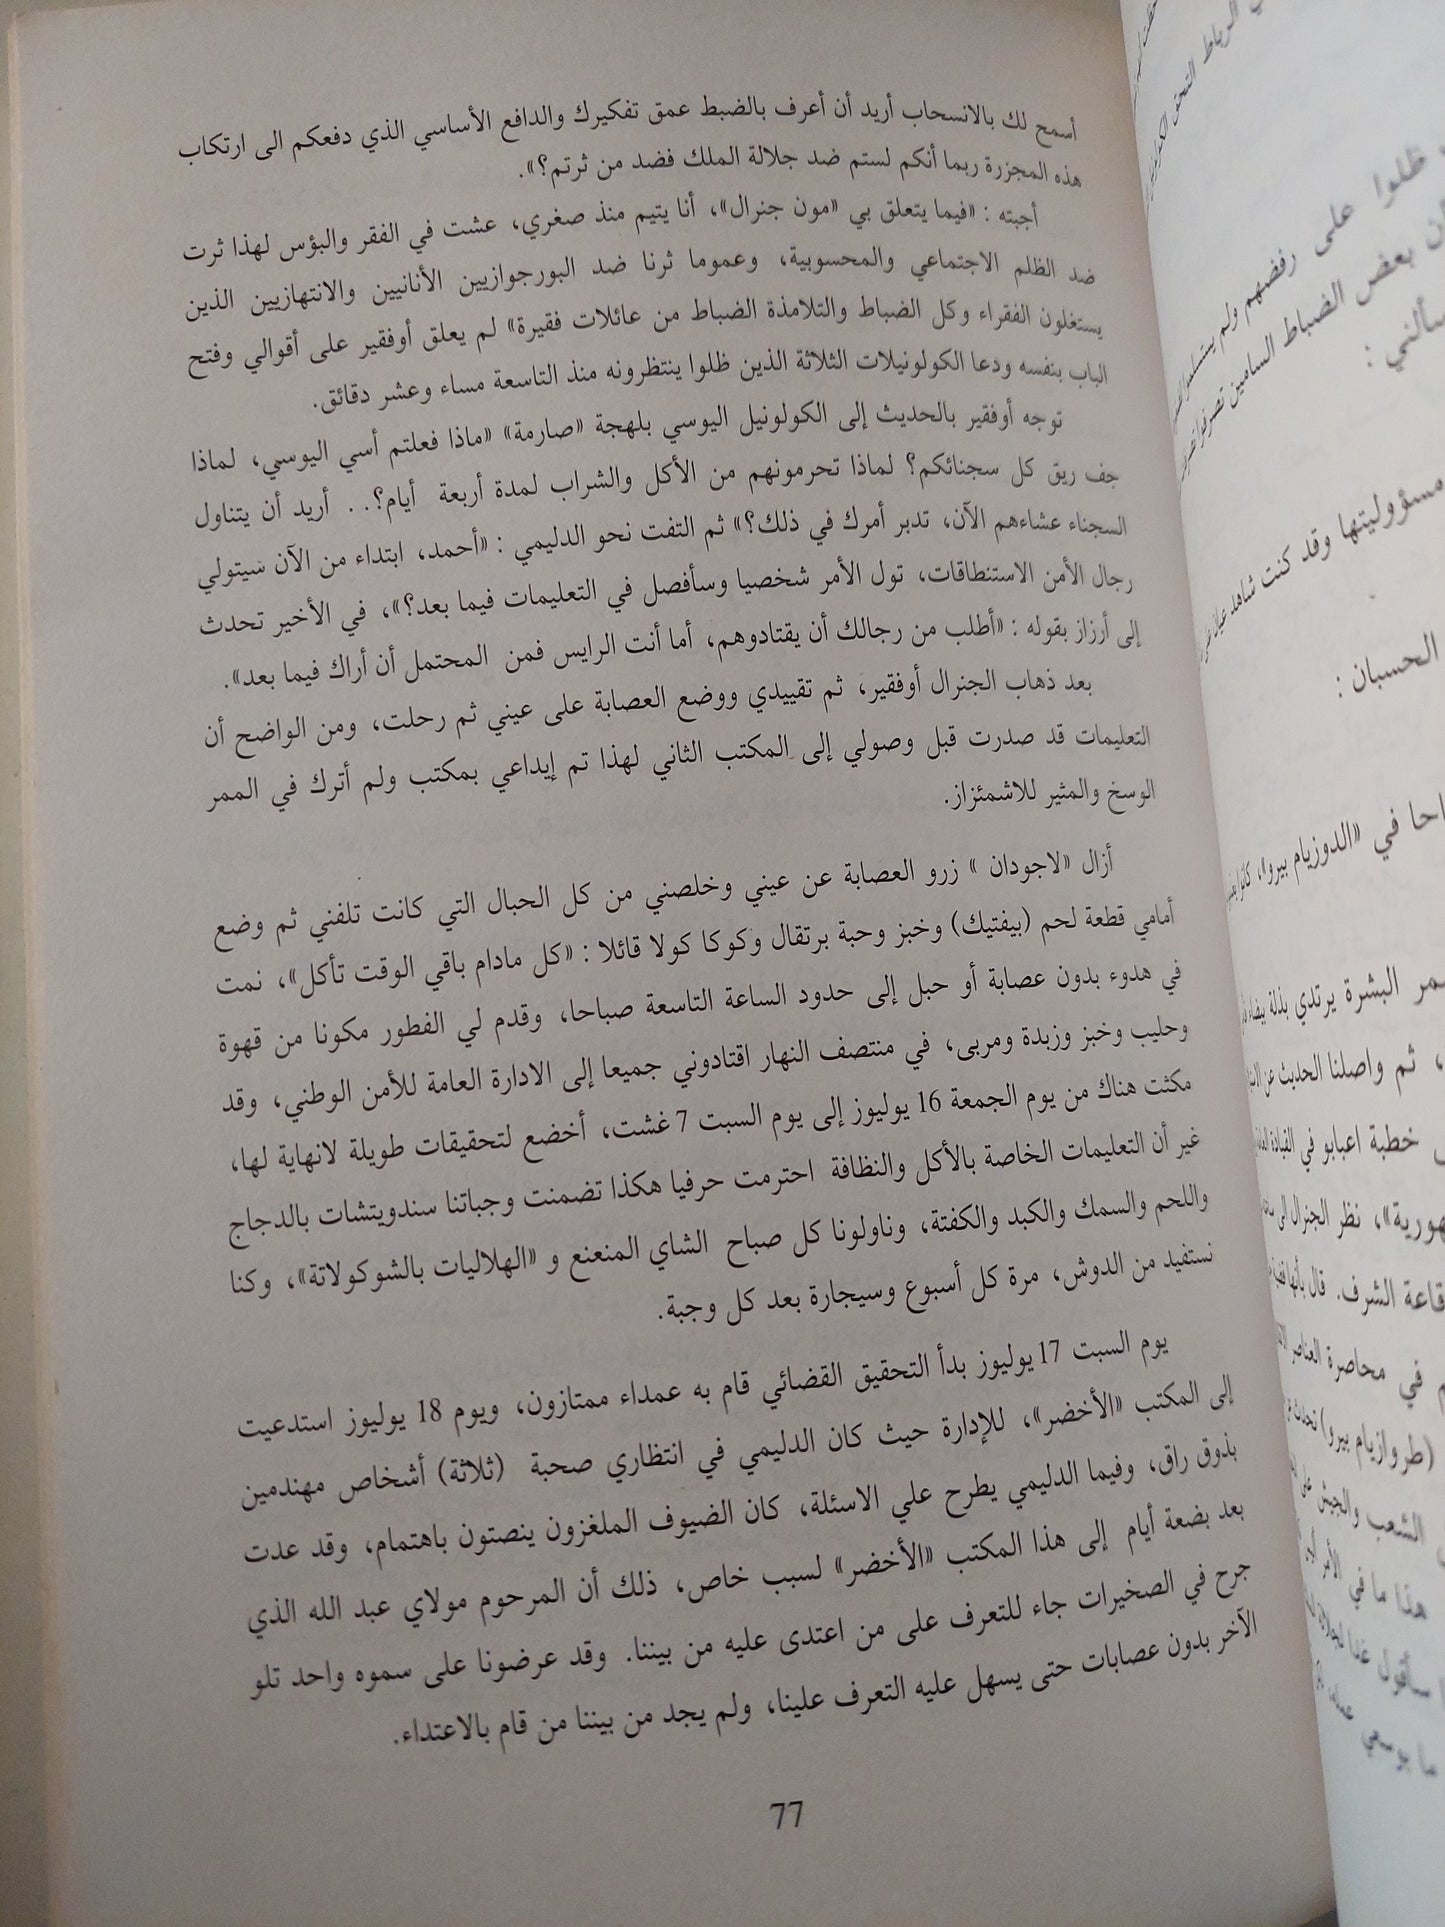 أسمح لك بالانسحاب أريد أن أعرف بالضبط عمق تفكيرك والدافع الأساسي الذي دفعكم الى ارتكاب
هذه المجزرة ربما أنكم لستم ضد جلالة الملك فضد من ثرتم؟».
أجبته : «فيما يتعلق بي «مون جنرال»، أنا يتيم منذ صغري، عشت في الفقر والبؤس لهذا ثرت
ضد الظلم الاجتماعي والمحسوبية، وعموما ثرنا ضد البورجوازيين الأنانيين والانتهازيين الذين
يستغلون الفقراء وكل الضباط والتلامذة الضباط من عائلات فقيرة» لم يعلق أوفقير على أقوالي وفتح
الباب بنفسه ودعا الكولونيلات الثلاثة الذين ظلوا ينتظرونه منذ التاسعة مساء وعشر دقائق.
توجه أوفقير بالحديث إلى الكولونيل اليوسي بلهجة «صارمة» «ماذا فعلتم أسي اليوسي، لماذا
جف ريق كل سجنائكم؟ لماذا تحرمونهم من الأكل والشراب لمدة أربعة أيام؟.. أريد أن يتناول
السجناء عشاءهم الآن، تدبر أمرك في ذلك؟» ثم التفت نحو الدليمي : «أحمد، ابتداء من الآن سيتولي
رجال الأمن الاستنطاقات، تول الأمر شخصيا وسأفصل في التعليمات فيما بعد؟»، في الأخير تحدث
إلى أرزاز بقوله : «أطلب من رجالك أن يقتادوهم، أما أنت الرايس فمن المحتمل أن أراك فيما بعد».
بعد ذهاب الجنرال أوفقير، ثم تقييدي ووضع العصابة على عيني ثم رحلت، ومن الواضح أن
التعليمات قد صدرت قبل وصولي إلى المكتب الثاني لهذا تم إيداعي بمكتب ولم أترك في الممر
الوسخ والمثير للاشمئزاز.
أزال «لاجودان » زرو العصابة عن عيني وخلصني من كل الحبال التي كانت تلفني ثم وضع
أمامي قطعة لحم (بيفتيك) وخبز وحبة برتقال وكوكا كولا قائلا : «كل مادام باقي الوقت تأكل»، نمت
في هدوء بدون عصابة أو حبل إلى حدود الساعة التاسعة صباحا، وقدم لي الفطور مكونا من قهوة
وحليب وخبز وزبدة ومربى، في منتصف النهار اقتادوني جميعا إلى الادارة العامة للأمن الوطني، وقد
مكثت هناك من يوم الجمعة 16 يوليوز إلى يوم السبت 7 غشت، أخضع لتحقيقات طويلة لانهاية لها،
غير أن التعليمات الخاصة بالأكل والنظافة احترمت حرفيا هكذا تضمنت وجباتنا سندويتشات بالدجاج
واللحم والسمك والكبد والكفتة، وناولونا كل صباح الشاي المنعنع و «الهلاليات بالشوكولاتة»، وكنا
نستفيد من الدوش، مرة كل أسبوع وسيجارة بعد كل وجبة.
يوم السبت 17 يوليوز بدأ التحقيق القضائي قام به عمداء ممتازون، ويوم 18 يوليوز استدعيت
إلى المكتب «الأخضر»، للإدارة حيث كان الدليمي في انتظاري صحبة (ثلاثة) أشخاص مهندمين
بذوق راق، وفيما الدليمي يطرح علي الاسئلة، كان الضيوف الملغزون ينصتون باهتمام، وقد عدت
بعد بضعة أيام إلى هذا المكتب «الأخضر» لسبب خاص، ذلك أن المرحوم مولاي عبد الله الذي
جرح في الصخيرات جاء للتعرف على من اعتدى عليه من بيننا. وقد عرضونا على سموه واحد تلو
الآخر بدون عصابات حتى يسهل عليه التعرف علينا، ولم يجد من بيننا من قام بالاعتداء.
77
ظلوا على رفضهم ولم
بعض الضباط السامين
مسؤوليتها وقد كنت شاهد عيان
الحسبان :
في «الدوزيام بيرو»، كانوا
البشرة يرتدي بذلة بيضاء
، ثم واصلنا الحديث عن
خطبة اعبابو في القيادة
نظر الجنرال الى
قاعة الشرف. قال بأنها
في محاصرة العناصر
(طروازيام بيرو) تحدث
الشعب والجيش على
هذا ما في الأمر